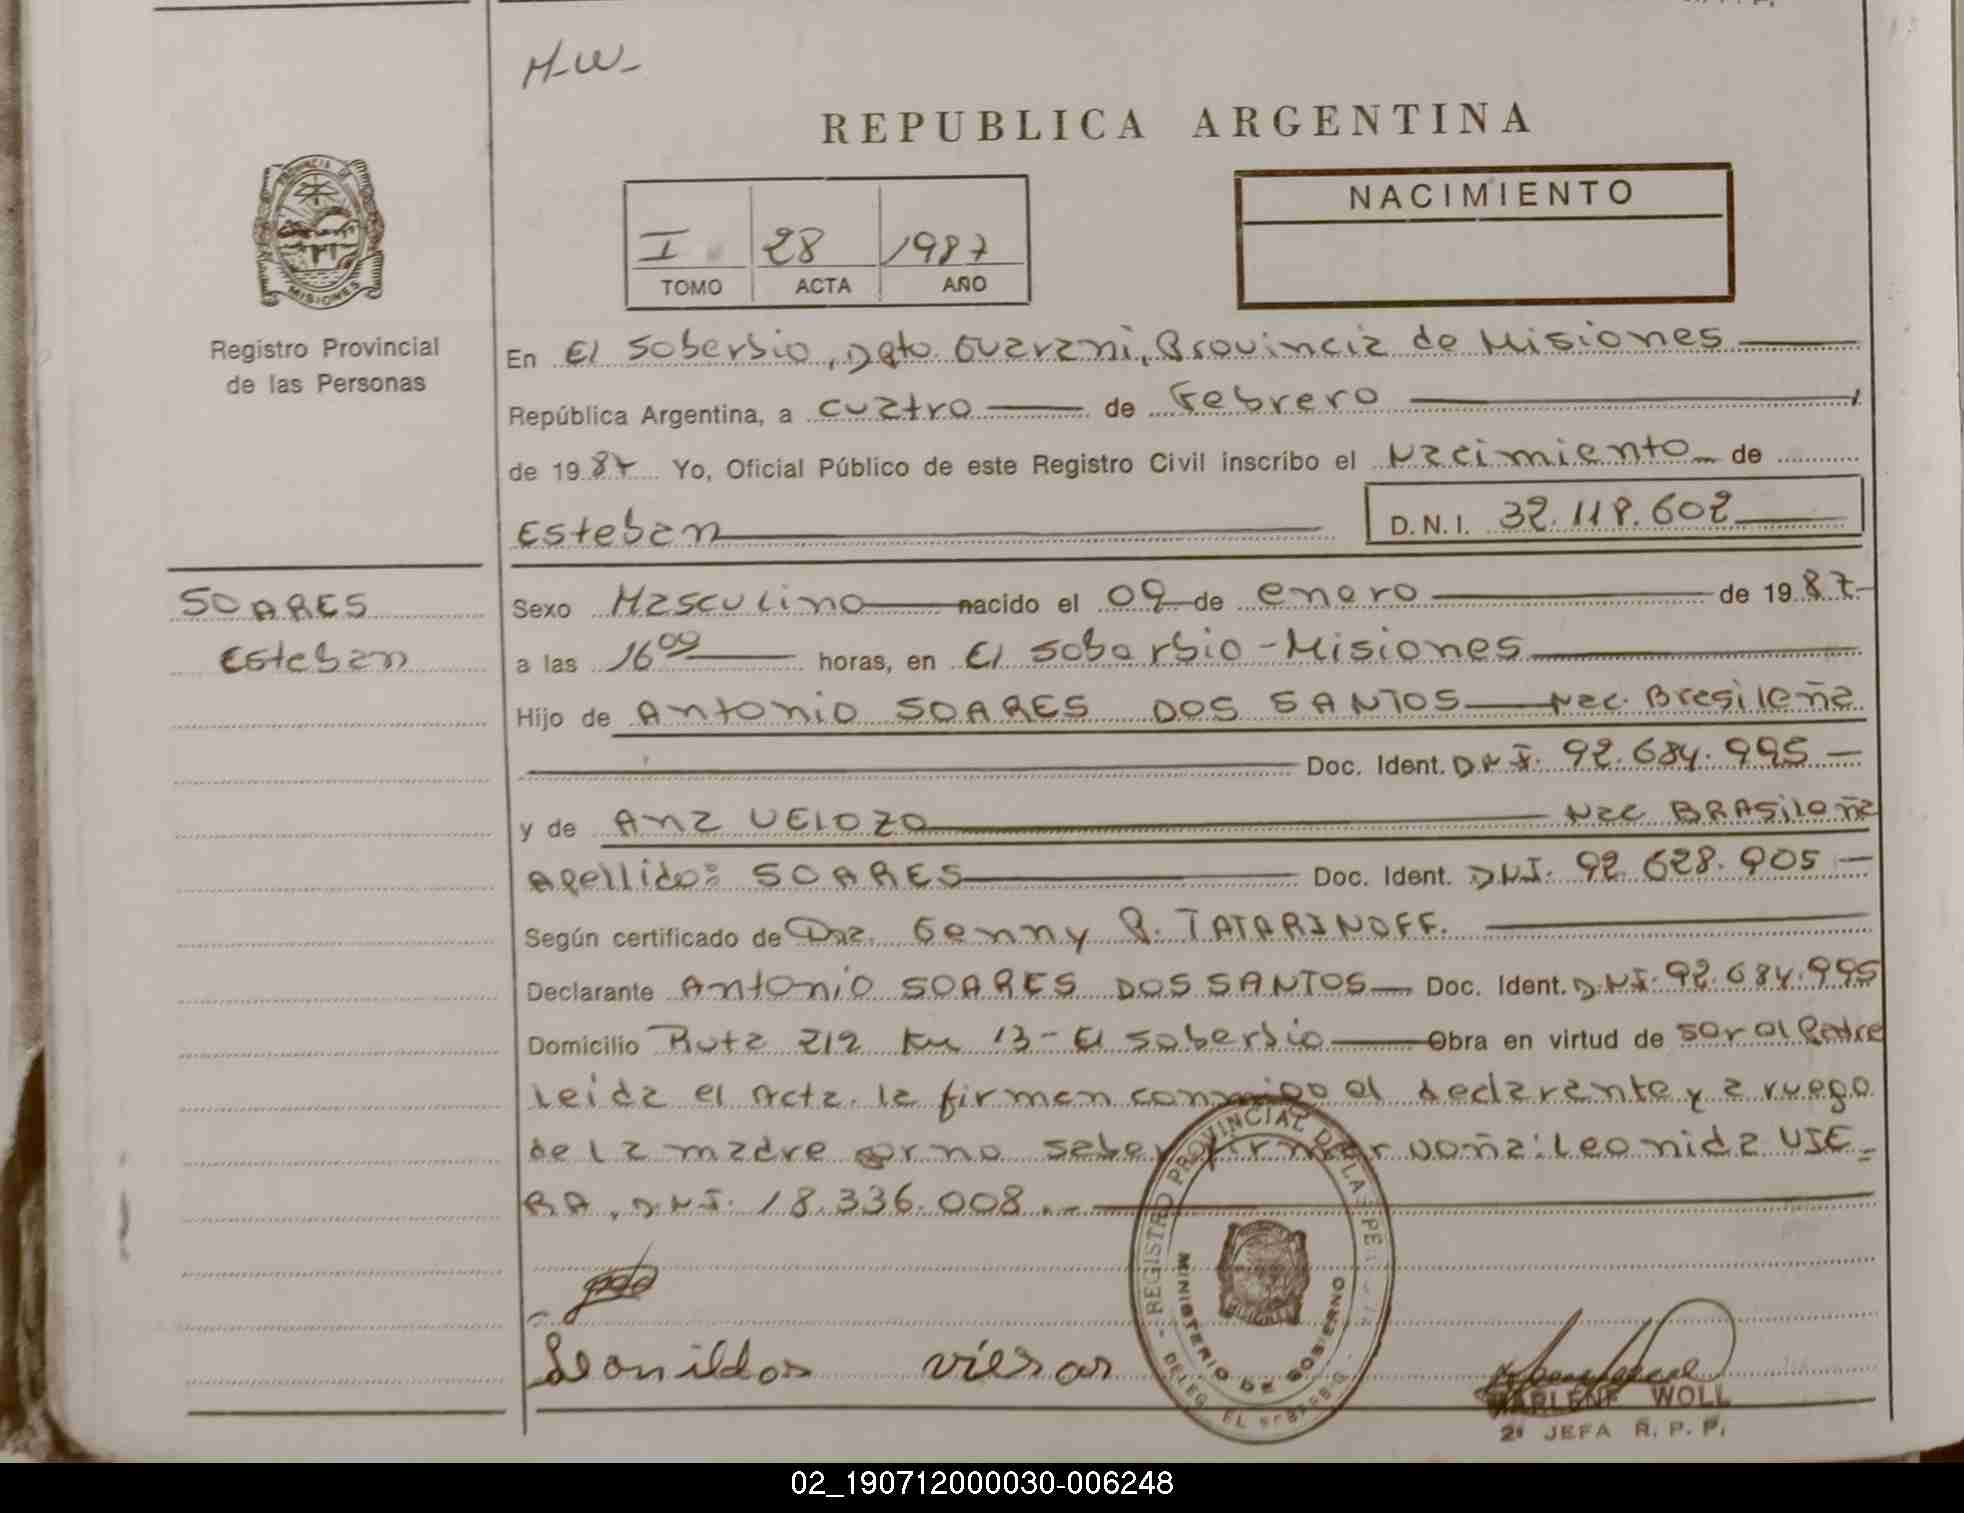 M-W-
REPUBLICA ARGENTINA
NACIMIENTO
I 28 1987
TOMO ACTA AÑO
PROVINCIA DE MISIONES
Registro Provincial
de las Personas
En El Soberbio, Dpto Guarani, Provincia de Misiones
República Argentina, a cuatro de Febrero
de 1987 Yo, Oficial Público de este Registro Civil inscribo el Nacimiento de
Esteban D.N.I. 32.118.602
SOARES
Esteban
Sexo Masculino nacido el 09 de enero de 1987-
a las 16 00 horas, en El Soberbio - Misiones
Hijo de Antonio SOARES DOS SANTOS Nac. Brasileña
Doc. Ident. DNI. 92.684.995-
y de Ana VELOZO Nac BRASileña
Apellido: SOARES Doc. Ident. DNI. 92.628.905-
Según certificado de Dra. Genny P. TATARINOFF.
Declarante Antonio SOARES DOS SANTOS Doc. Ident. D.NI. 92.684.995
Domicilio Ruta 212 Km 13 - El Soberbio Obra en virtud de ser el Padre
Leida el Acta. la firman conmigo el declarante y a ruego
de la madre por no saber firmar doña: Leonida VIE=
RA, DNI. 18.336.008.-
Leonildos vieras
REGISTRO PROVINCIAL DE LAS PER
MINISTERIO DE GOBIERNO
DELEG. EL SOBERBIO
MARLENE WOLL
2ª JEFA R. P. P.
02_190712000030-006248